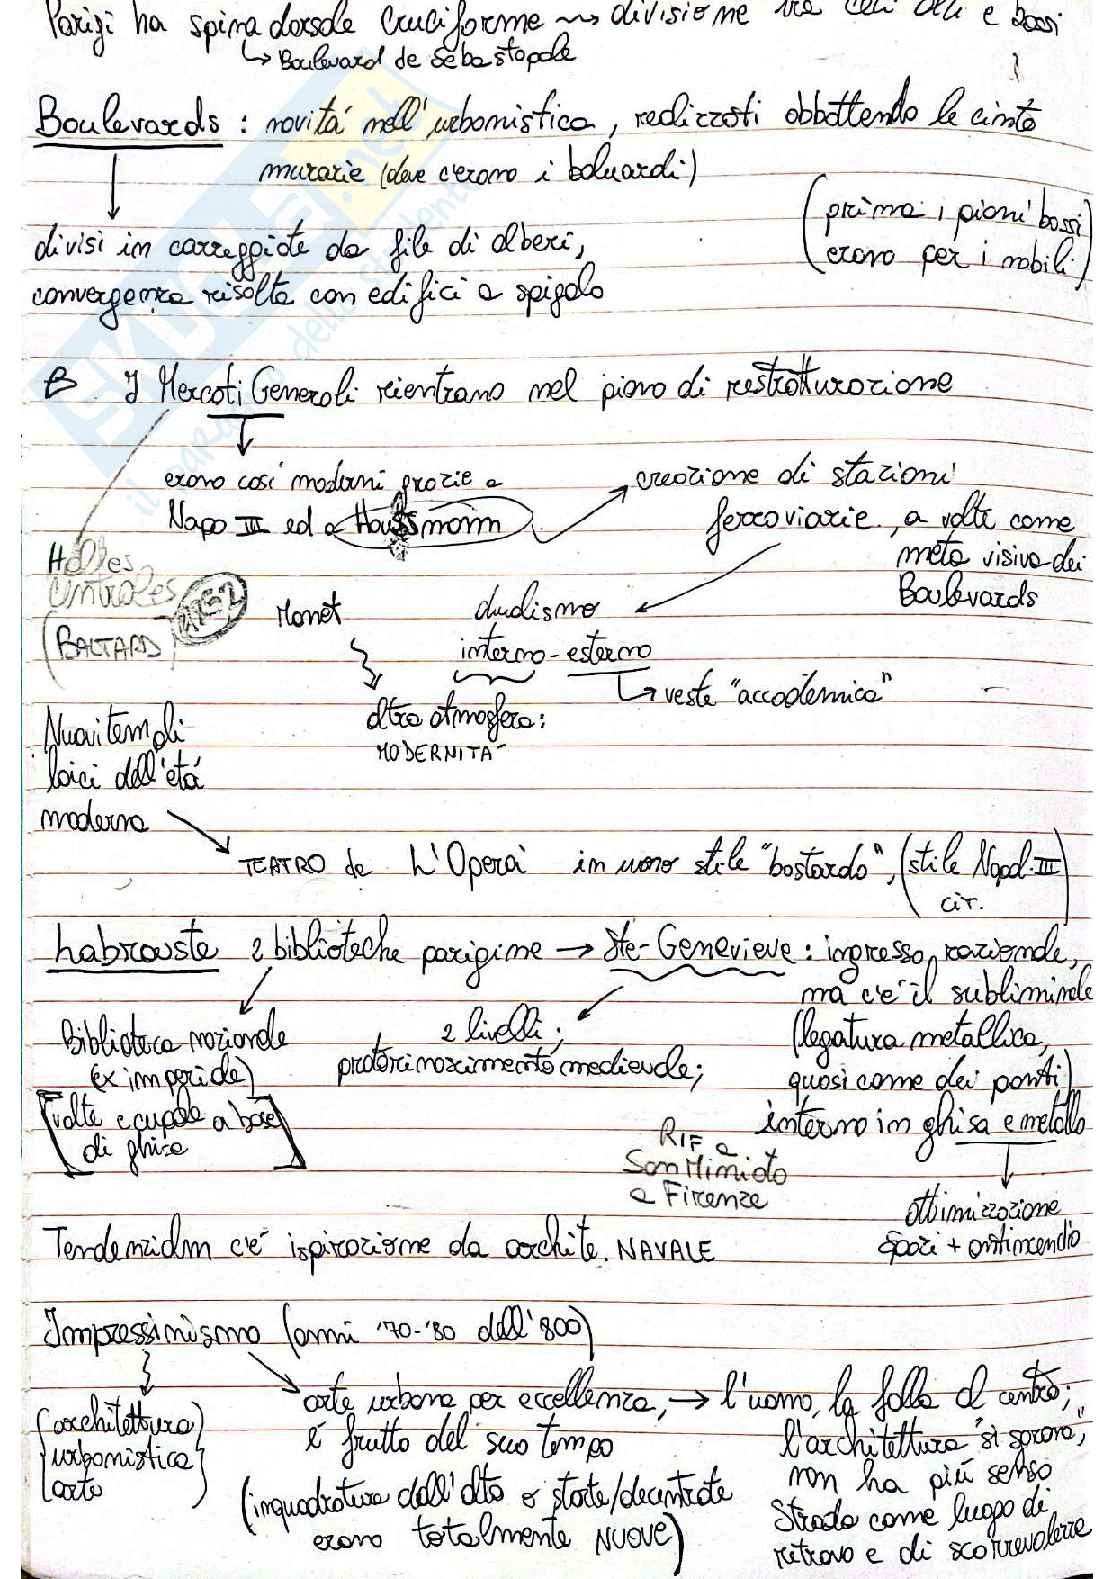 Parigi ha spina dorsale cruciforme → divisione tra ceti alti e bassi
↳ Boulevard de Sebastopole
Boulevards : novitá nell'urbanistica, realizzati abbattendo le cinte
murarie (dove c'erano i baluardi)
(prima i piani bassi
erano per i nobili)
divisi in carreggiate da file di alberi,
convergenza risolta con edifici a spigolo
I Mercati Generali rientrano nel piano di restrutturazione
erano così moderni grazie a
Napo III ed a Haussmann
creazione di stazioni
ferroviarie, a volte come
meta visiva dei
Boulevards
Halles
Centrales
(BALTARD)
Monet
dualismo
interno-esterno
↳ veste "accademica"
altra atmosfera:
MODERNITÁ
Nuovi templi
laici dell'etá
moderna
TEATRO de L'Opera in uno stile "bastardo", (stile Napol. III
cir.)
Labrouste 2 biblioteche parigine → Ste-Genevieve : ingresso razionale,
ma c'è il subliminale
(legatura metallica,
quasi come dei ponti)
interno in ghisa e metallo
Biblioteca nazionale
(ex imperiale)
[volte e cupole a base
di ghisa]
2 livelli;
protorinascimento medievale;
RIF a
San Miniato
a Firenze
ottimizzazione
spazi + antincendio
Tendenzialm c'é ispirazione da archite. NAVALE
Impressinismo (anni '70-'80 dell'800)
{architettura
urbanistica
arte}
arte urbana per eccellenza, → l'uomo, la folla al centro;
é frutto del suo tempo
l'architettura "si sgrana",
non ha piú senso
(inquadratura dall'alto o storte/decentrate
erano totalmente NUOVE)
Strada come luogo di
ritrovo e di scorrevolezza
SKUOLA.net
il paradiso dello studente